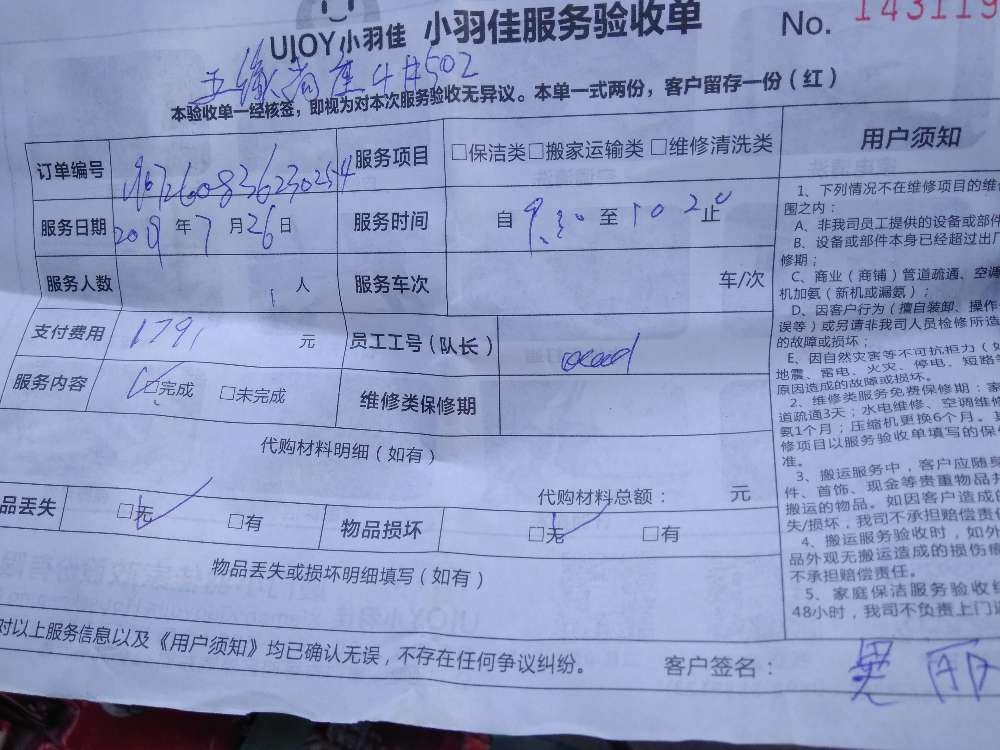 UJOY小羽佳 小羽佳服务验收单 No. 143119
4#502
本验收单一经核签，即视为对本次服务验收无异议。本单一式两份，客户留存一份（红）
订单编号 服务项目 □保洁类□搬家运输类 □维修清洗类
服务日期 2019 年 7 月 26 日 服务时间 自 9:30 至 止
服务人数 1 人 服务车次 车/次
支付费用 179 元 员工工号（队长）
服务内容 □完成 □未完成 维修类保修期
代购材料明细（如有）
代购材料总额： 元
品丢失 □无 □有 物品损坏 □无 □有
物品丢失或损坏明细填写（如有）
对以上服务信息以及《用户须知》均已确认无误，不存在任何争议纠纷。 客户签名：
用户须知
1、下列情况不在维修项目的维
围之内：
A、非我司员工提供的设备或部件
B、设备或部件本身已经超过出厂
修期；
C、商业（商铺）管道疏通、空调
机加氨（新机或漏氨）；
D、因客户行为（擅自装卸、操作
误等）或另请非我司人员检修所造
的故障或损坏；
E、因自然灾害等不可抗拒力（如
地震、雷电、火灾、停电、短路
原因造成的故障或损坏。
2、维修类服务免费保修期：家
道疏通3天；水电维修、空调维修
氨1个月；压缩机更换6个月。其
修项目以服务验收单填写的保
准。
3、搬运服务中，客户应随身
件、首饰、现金等贵重物品并
搬运的物品。如因客户造成
失/损坏，我司不承担赔偿责任
4、搬运服务验收时，如外
品外观无搬运造成的损伤
不承担赔偿责任。
5、家庭保洁服务验收
48小时，我司不负责上门